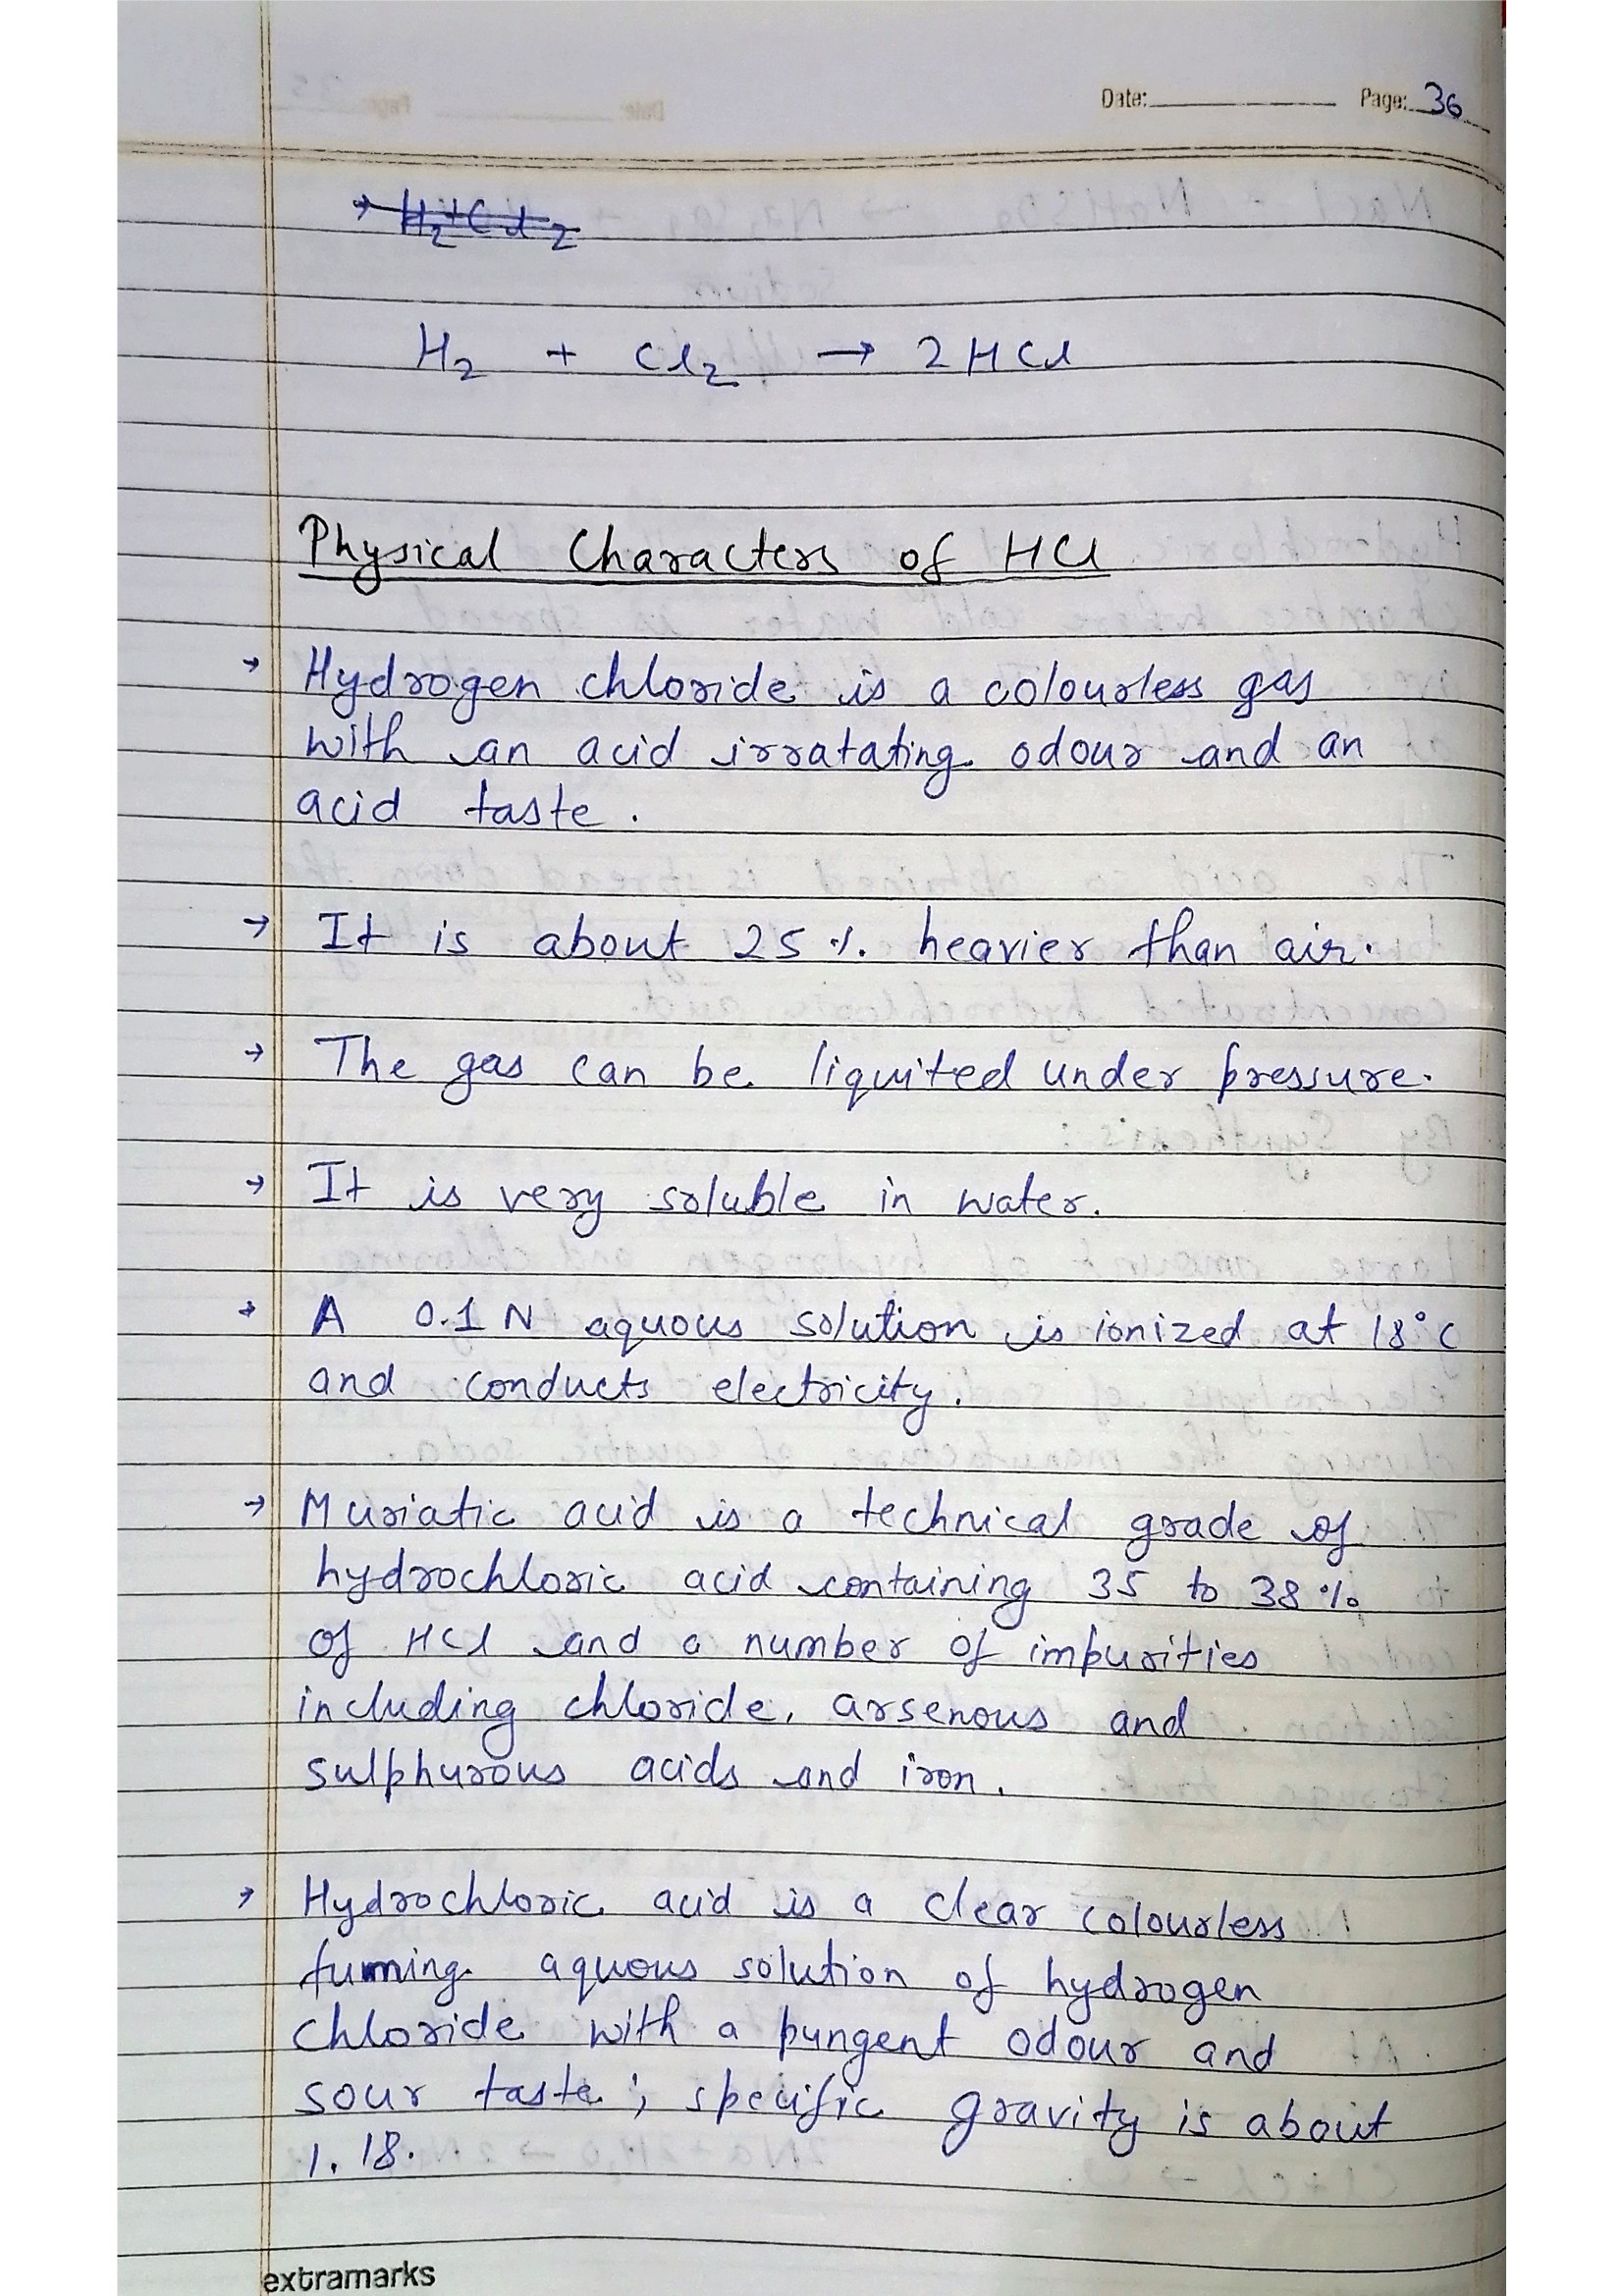 Date: Page: 36
→ H2+Cl2
H2 + Cl2 → 2HCl
Physical Characters of HCl
→ Hydrogen chloride is a colourless gas
with an acid irratating odour and an
acid taste.
→ It is about 25 %. heavier than air.
→ The gas can be liquited under pressure.
→ It is very soluble in water.
→ A 0.1 N aquous solution is ionized at 18°C
and conducts electricity.
→ Muriatic acid is a technical grade of
hydrochloric acid containing 35 to 38 %
of HCl and a number of impurities
including chloride, arsenous and
sulphurous acids and iron.
→ Hydrochloric acid is a clear colourless
fuming aquous solution of hydrogen
chloride with a pungent odour and
sour taste ; specific gravity is about
1.18.
extramarks